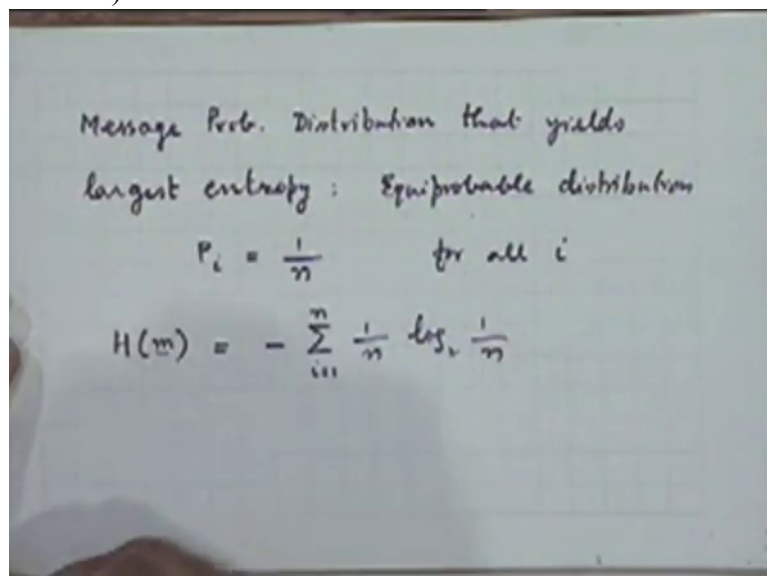 Message Prob. Distribution that yields
largest entropy : Equiprobable distribution
P_i = 1/n for all i
H(m) = - ∑_{i=1}^{n} 1/n log_2 1/n